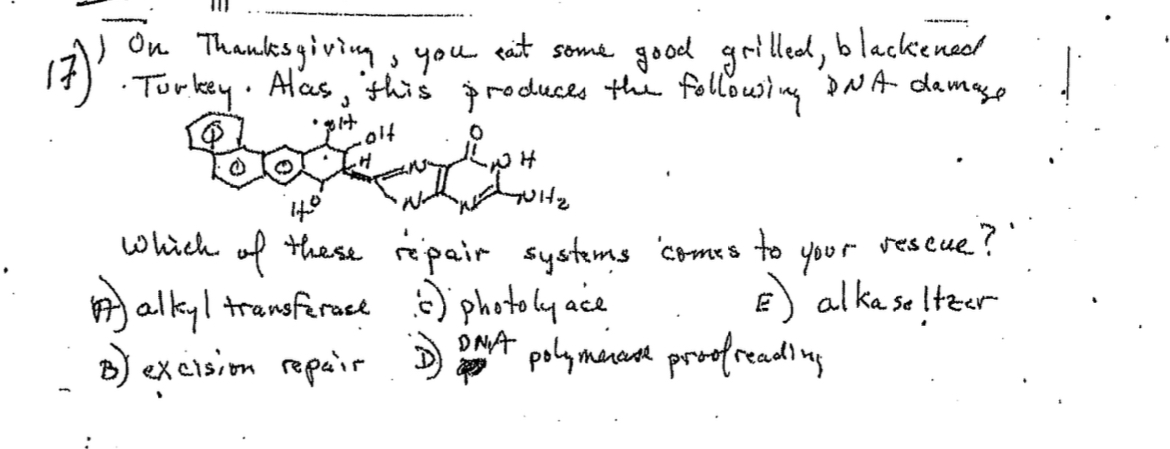 17) On Thanksgiving, you eat some good grilled, blackened
Turkey. Alas, this produces the following DNA damage
OH
OH
O
H
N
NH
HO
N
N
NH2
Which of these repair systems comes to your rescue?
A) alkyl transferase C) photolyase E) alkaseltzer
B) excision repair D) DNA polymerase proofreading